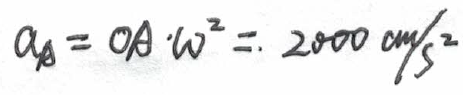 a_A = OA·ω² = 2000 cm/s²